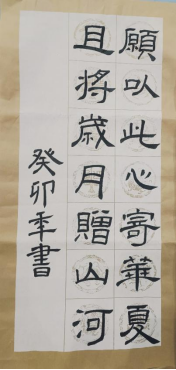 願以此心寄華夏
且将歲月贈山河
癸卯年書